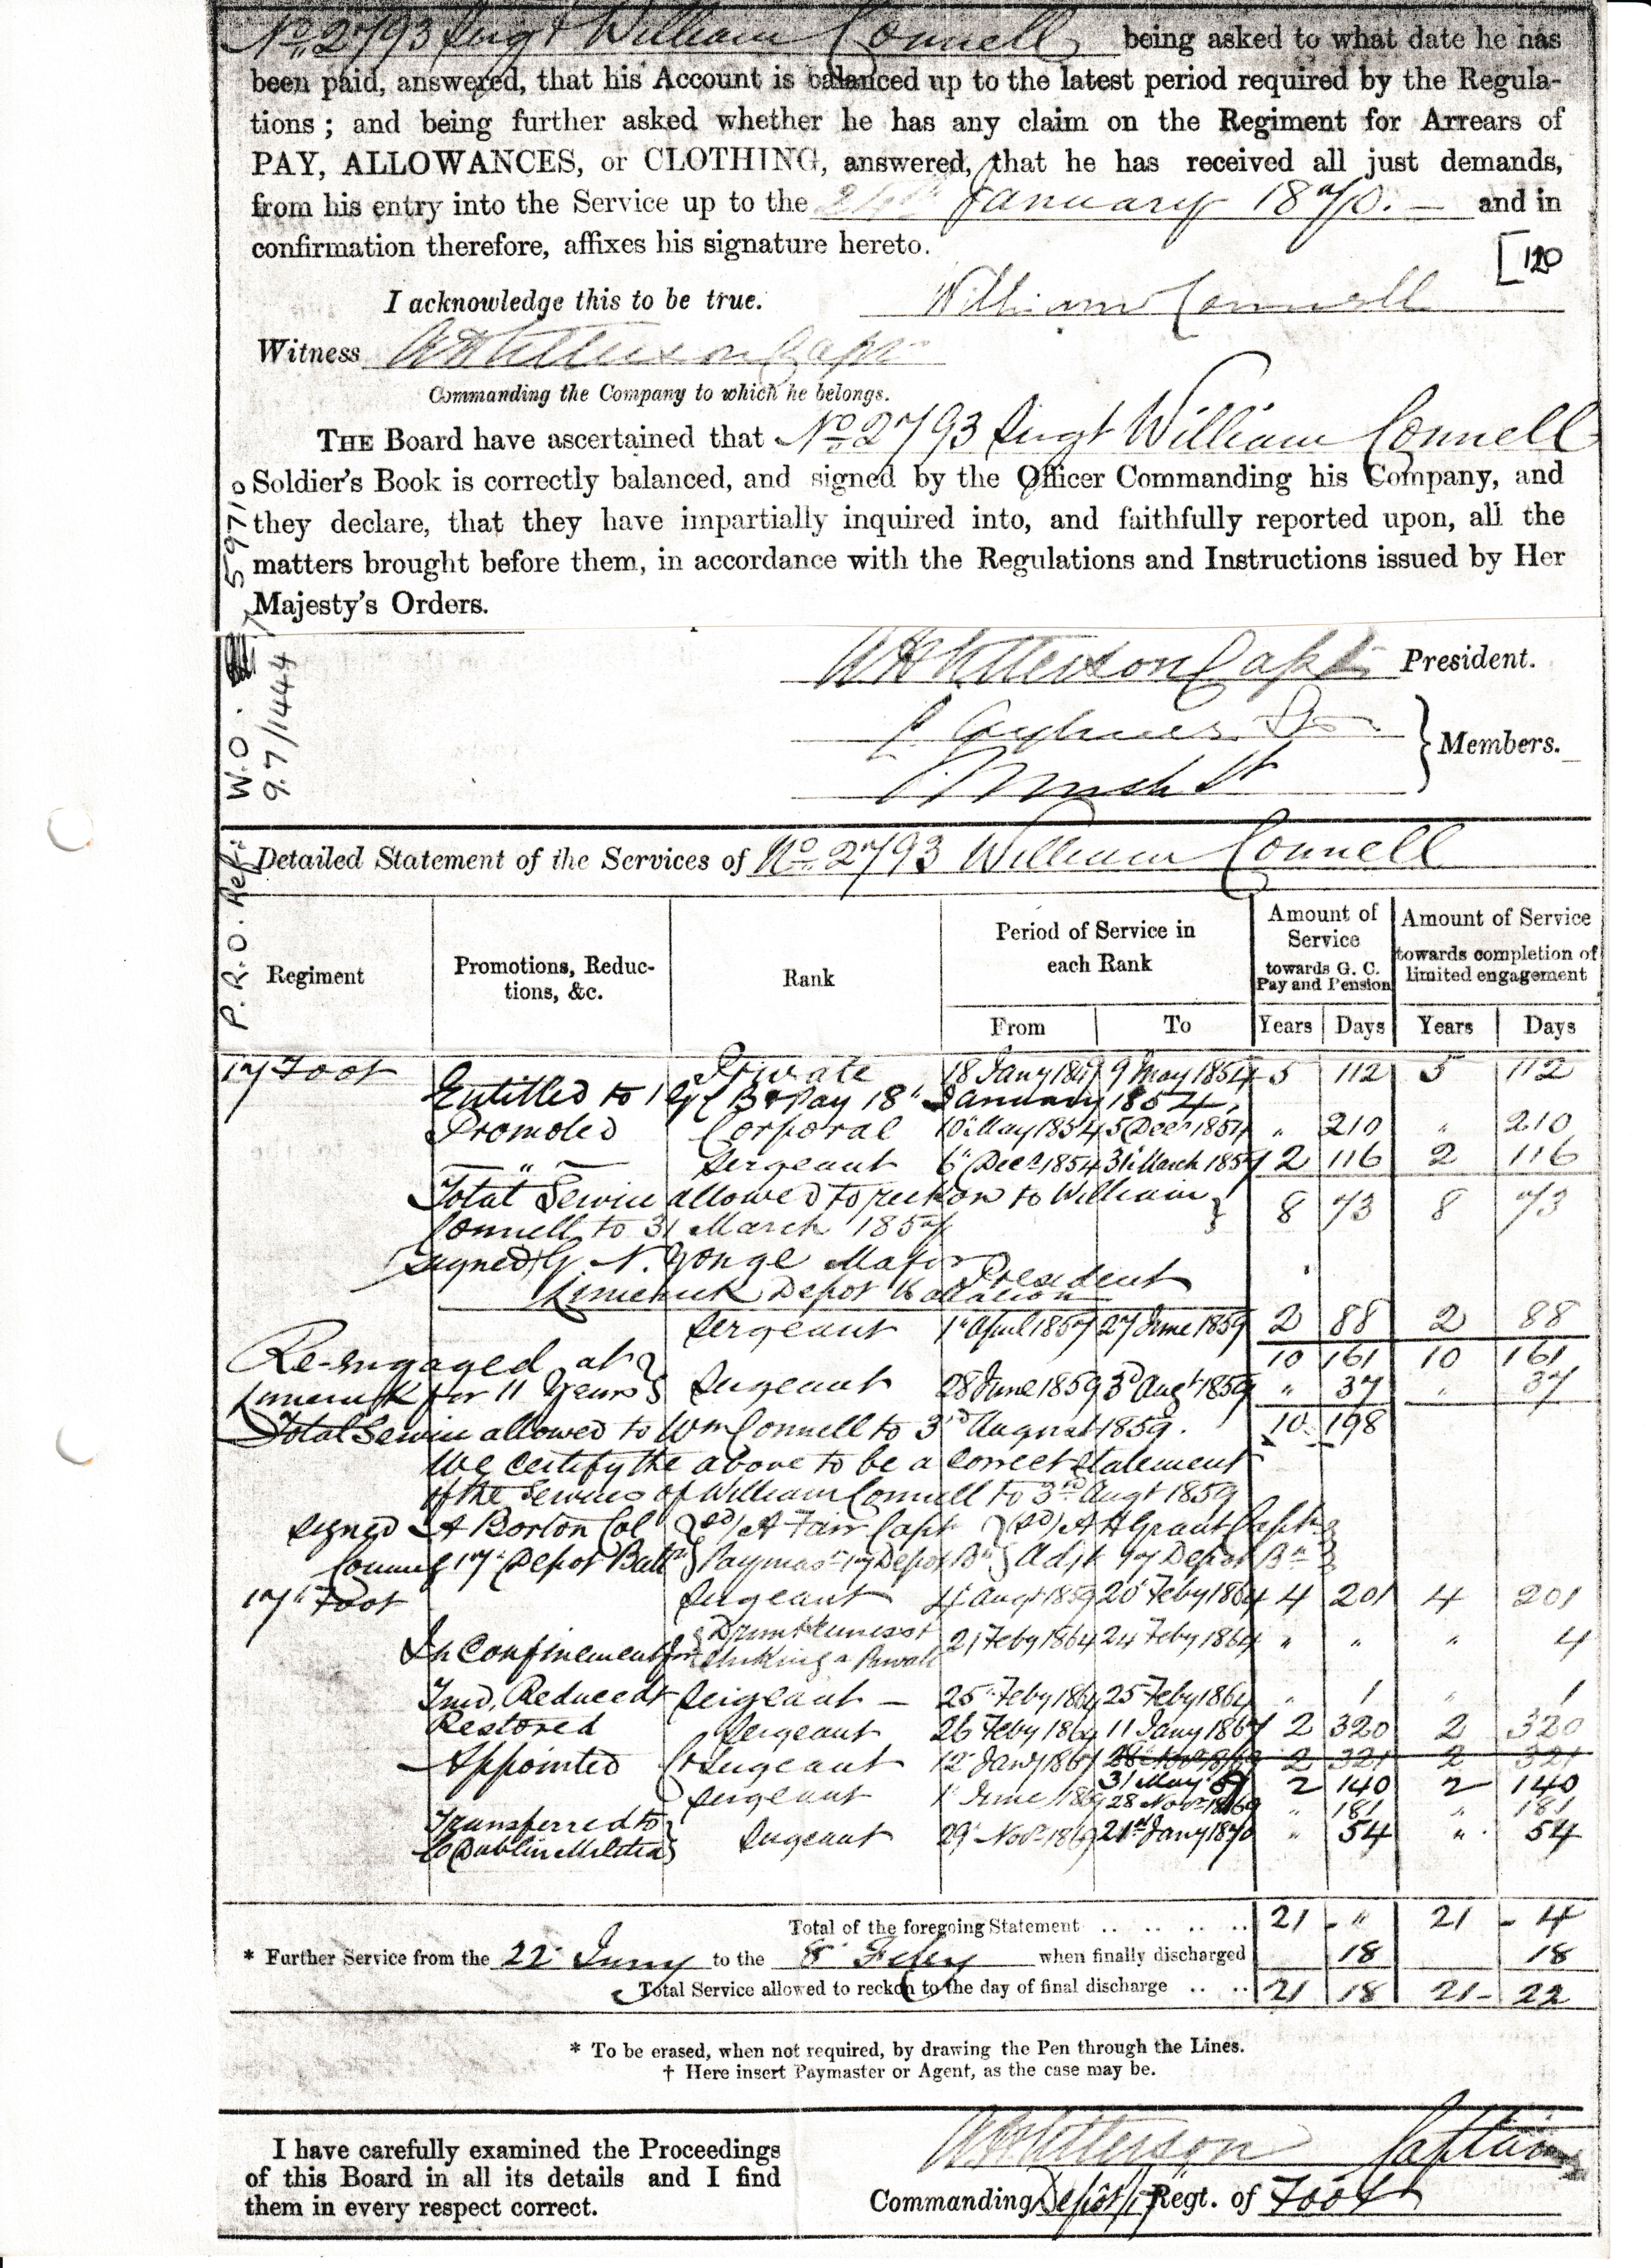 No 2793 Sergt William Connell being asked to what date he has
been paid, answered, that his Account is balanced up to the latest period required by the Regula-
tions ; and being further asked whether he has any claim on the Regiment for Arrears of
PAY, ALLOWANCES, or CLOTHING, answered, that he has received all just demands,
from his entry into the Service up to the January 1870. — and in
confirmation therefore, affixes his signature hereto.
[120
I acknowledge this to be true. William Connell
Witness Capt
Commanding the Company to which he belongs.
THE Board have ascertained that No 2793 Sergt William Connell
Soldier's Book is correctly balanced, and signed by the Officer Commanding his Company, and
they declare, that they have impartially inquired into, and faithfully reported upon, all the
matters brought before them, in accordance with the Regulations and Instructions issued by Her
Majesty's Orders.
P.R.O. Ref: W.O. 97/1444 / 59710
Capt President.
Members.
Detailed Statement of the Services of No 2793 William Connell
Regiment Promotions, Reduc-tions, &c. Rank Period of Service in each Rank Amount of Service towards G. C. Pay and Pension Amount of Service towards completion of limited engagement
From To Years Days Years Days
17 Foot Private 18 Jany 1849 9 May 1854 5 112 5 112
Entitled to 1d G C B & Pay 18th January 1854
Promoted Corporal 10th May 1854 5 Decr 1854 " 210 " 210
— " — Sergeant 6th Decr 1854 31st March 1857 2 116 2 116
Total Service allowed to reckon to William } 8 73 8 73
Connell to 31 March 1857
Signed G. N. Yonge Major
President
Limerick Depot Battalion
Sergeant 1st April 1857 27 June 1859 2 88 2 88
10 161 10 161
Re-engaged at }
Limerick for 11 Years } Sergeant 28 June 1859 3d Augt 1859 " 37 " 37
Total Service allowed to Wm Connell to 3rd August 1859. 10 198
We certify the above to be a correct statement
of the services of William Connell to 3rd Augt 1859
Signed A Borton Col } (sd) A Fair Capt } (sd) A H Grant Capt }
Commg 17th Depot Battn } Paymasr 17 Depot Bn } Adjt 17 Depot Bn }
17th Foot Sergeant 4th Augt 1859 20th Feby 1864 4 201 4 201
In Confinement for Drunkenness & striking a 21 Feby 1864 24 Feby 1864 " " " 4
Tried, Reduced Sergeant — 25th Feby 1864 25 Feby 1864 " 1 " 1
Restored Sergeant 26 Feby 1864 11 Jany 1867 2 320 2 320
Appointed Cr Sergeant 12th Jany 1867 28th Novr 1869 2 321 2 321
31 May 69 2 140 2 140
Sergeant 1st June 1869 28 Novr 1869 " 181 " 181
Transferred to }
Co Dublin Militia } Sergeant 29th Novr 1869 21st Jany 1870 " 54 " 54
Total of the foregoing Statement .. .. .. .. 21 - " 21 - 4
* Further Service from the 22d Jany to the 8th Feby when finally discharged 18 18
Total Service allowed to reckon to the day of final discharge .. .. 21 18 21 - 22
* To be erased, when not required, by drawing the Pen through the Lines.
† Here insert Paymaster or Agent, as the case may be.
I have carefully examined the Proceedings
of this Board in all its details and I find
them in every respect correct.
Captain
Commanding Depôt 17 Regt. of Foot